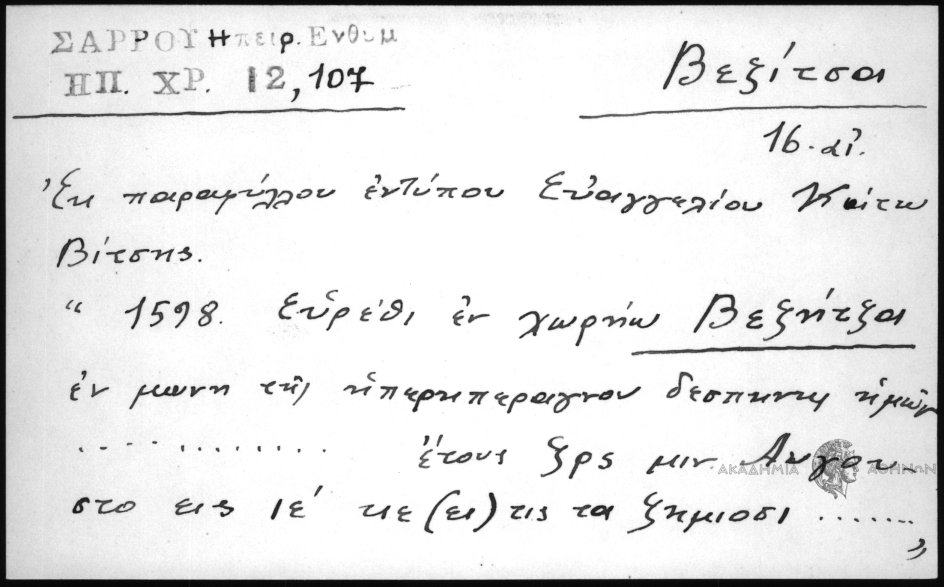 ΣΑΡΡΟΥ Ηπειρ. Ενθυμ
ΗΠ. ΧΡ. 12, 107
Βεζίτσα
16. αἰ.
Ἐκ παραφύλλου ἐντύπου Εὐαγγελίου Κάτω
Βίτσης.
“ 1598. Εὑρέθι ἐν χωρήω Βεζήτζα
ἐν μωνη τῆς ἡπερηπεραγνου δεσπηνης ἡμῶν
.............. ἔτους ζρς μιν. Αυγου-
στο εις ιέ κε (ει) τις τα ζημιοσι .......
”
ΑΚΑΔΗΜΙΑ ΑΘΗΝΩΝ